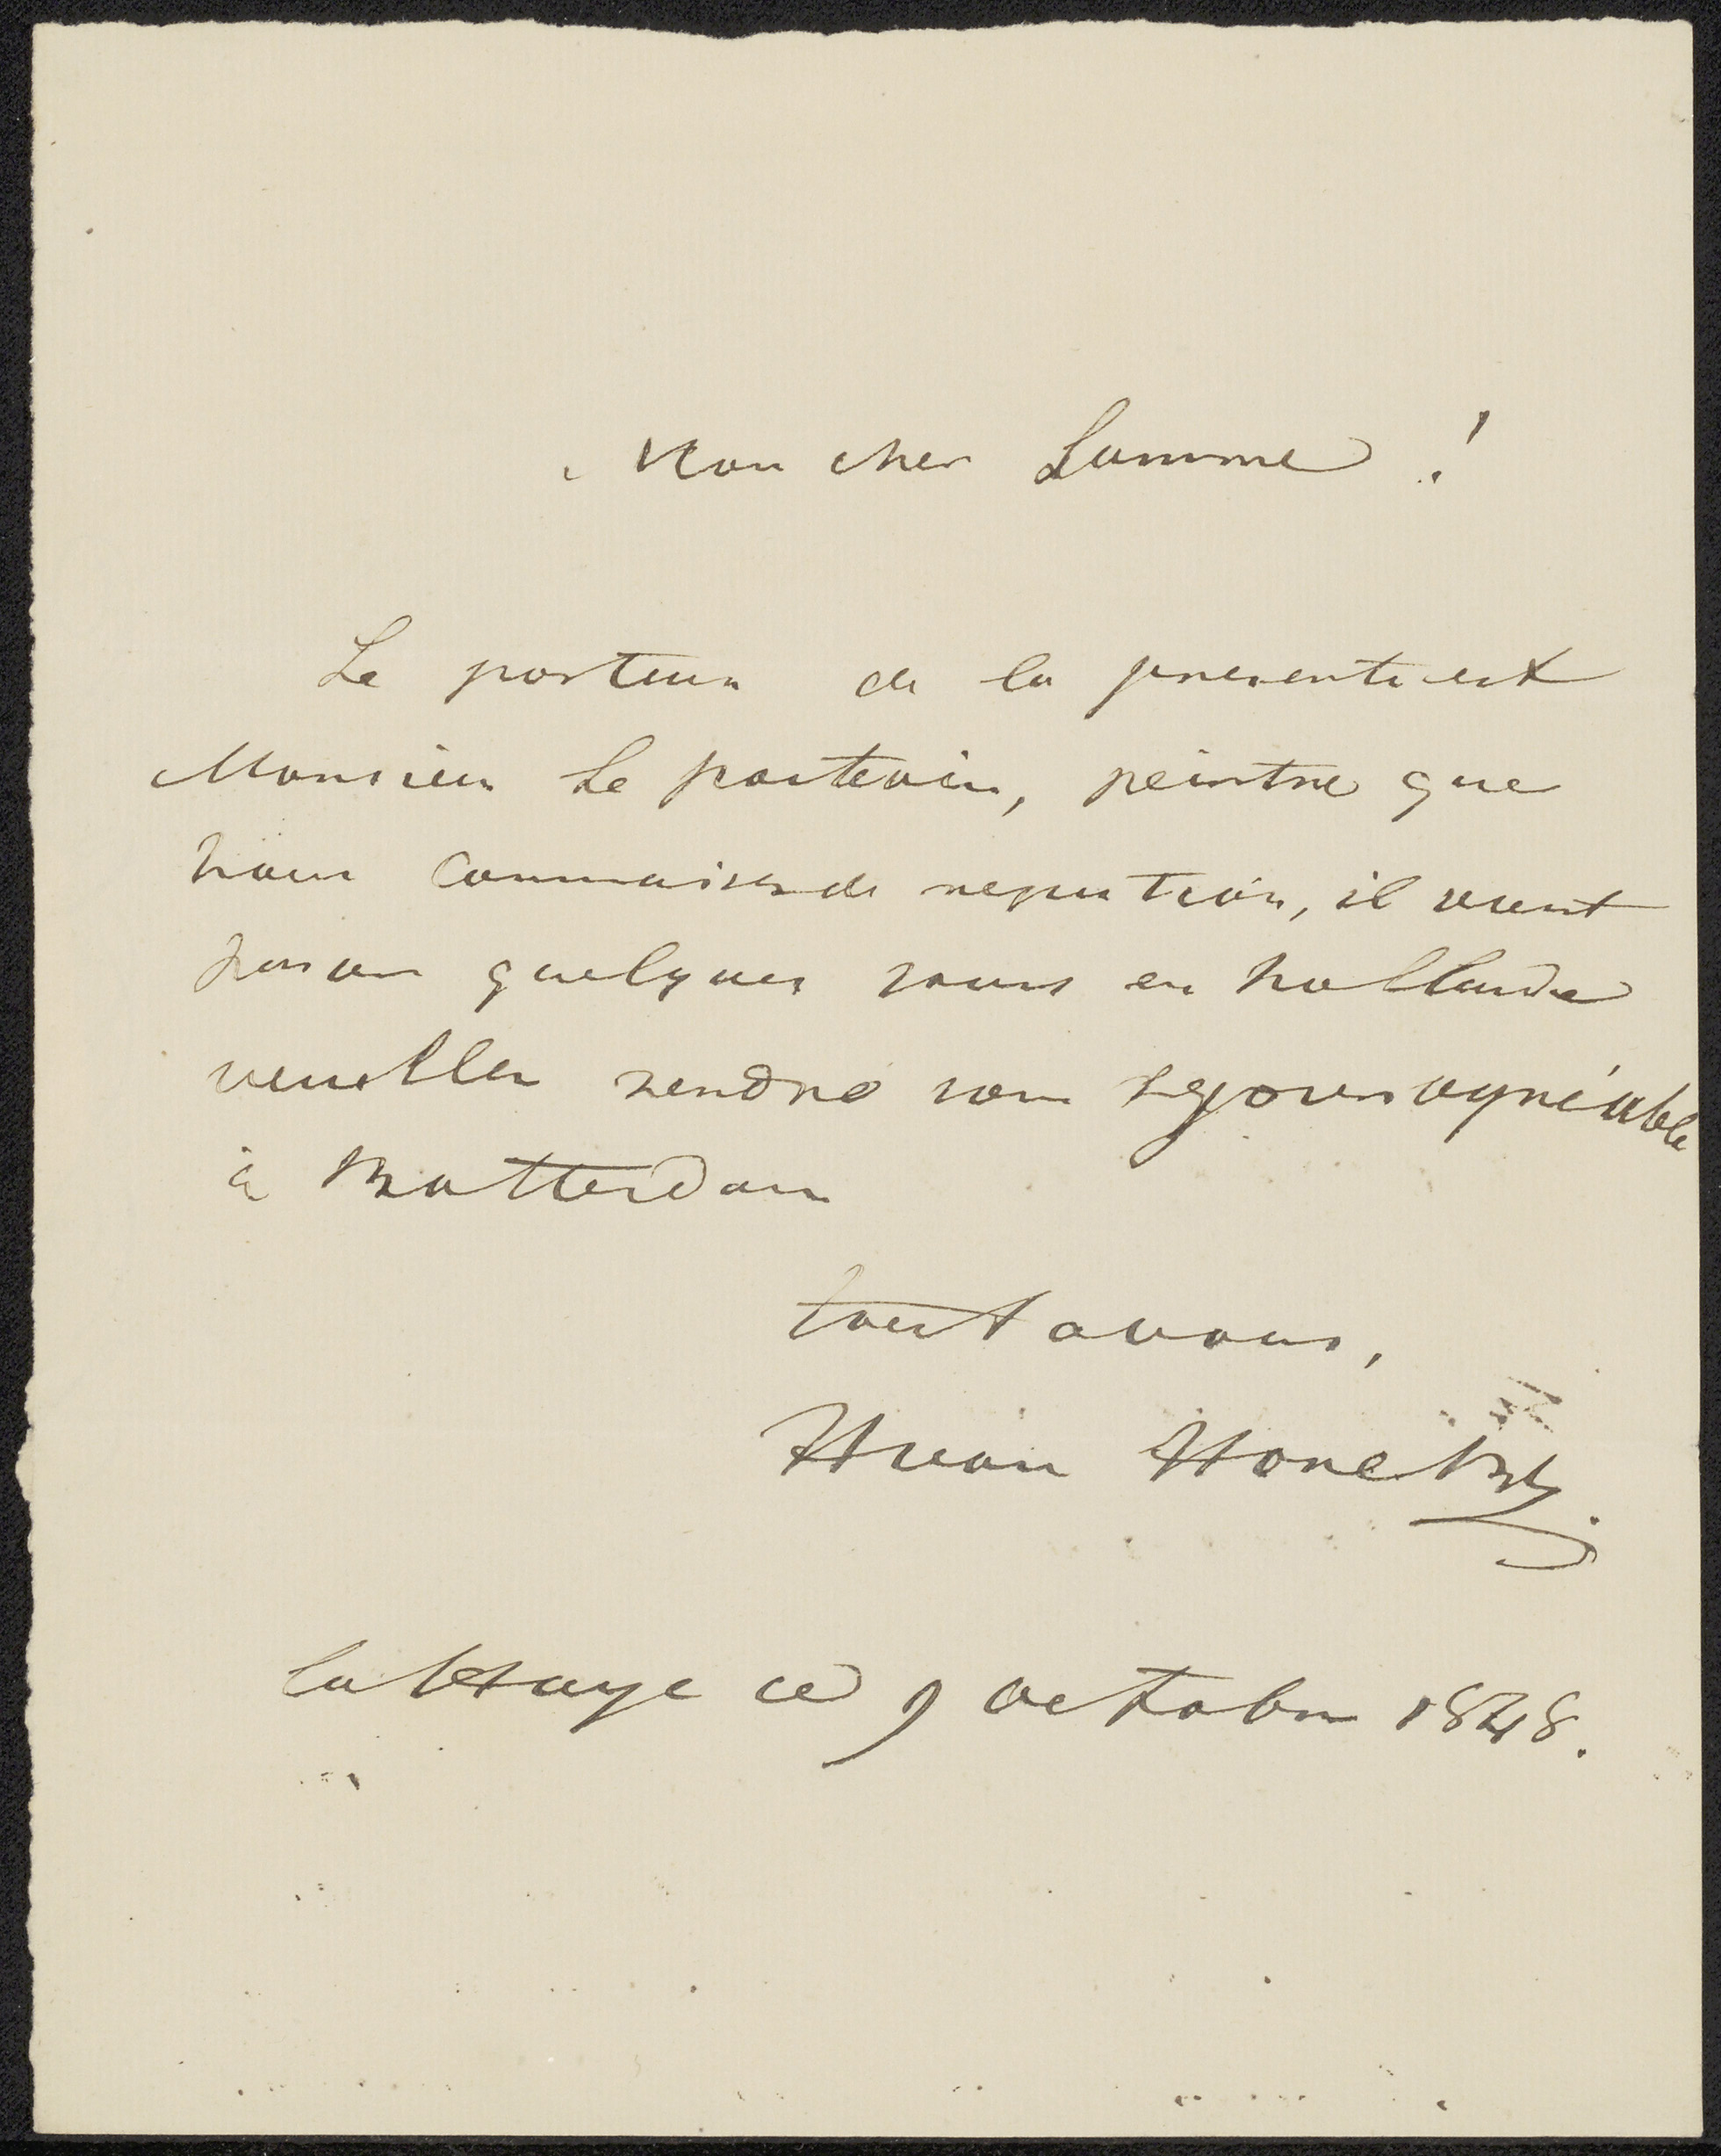 Mon cher Lamme !
Le porteur de la presente est
Monsieur Le poitevin, peintre que
vous connaisez de reputrion, il vient
passer quelques jours en hollande
veuillez rendre son sejour agréable
à Rotterdam
tout a vous,
Hvan Hove Bz
La Haye ce 9 octobre 1848.